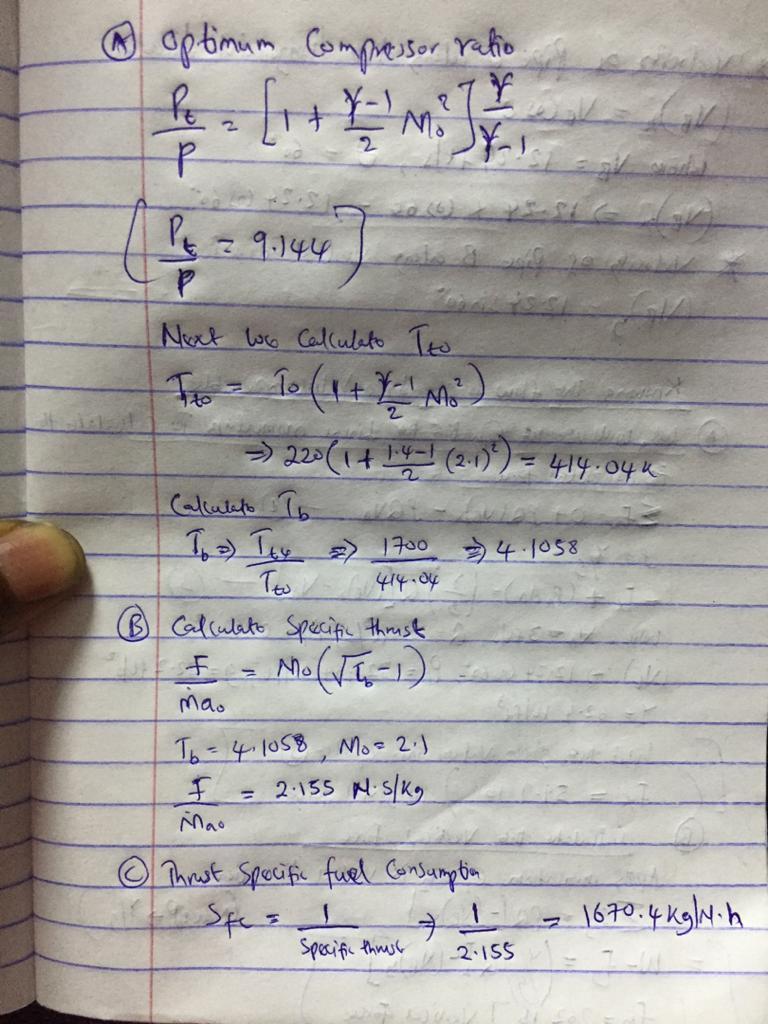 (A) Optimum Compressor ratio
Pt/P = [1 + γ-1/2 M₀²] γ/γ-1
[Pt/P = 9.144]
Next we Calculate Tt0
Tt0 = T0 (1 + γ-1/2 M₀²)
⇒ 220(1 + 1.4-1/2 (2.1)²) = 414.04K
Calculate Tb
Tb ⇒ Tt4/Tt0 ⇒ 1700/414.04 ⇒ 4.1058
(B) Calculate Specific thrust
F/ṁa₀ = M₀(√Tb - 1)
Tb = 4.1058, M₀ = 2.1
F/ṁa₀ = 2.155 N.s/kg
(C) Thrust Specific fuel Consumption
Sfc = 1/Specific thrust → 1/2.155 = 1670.4 kg/N.h